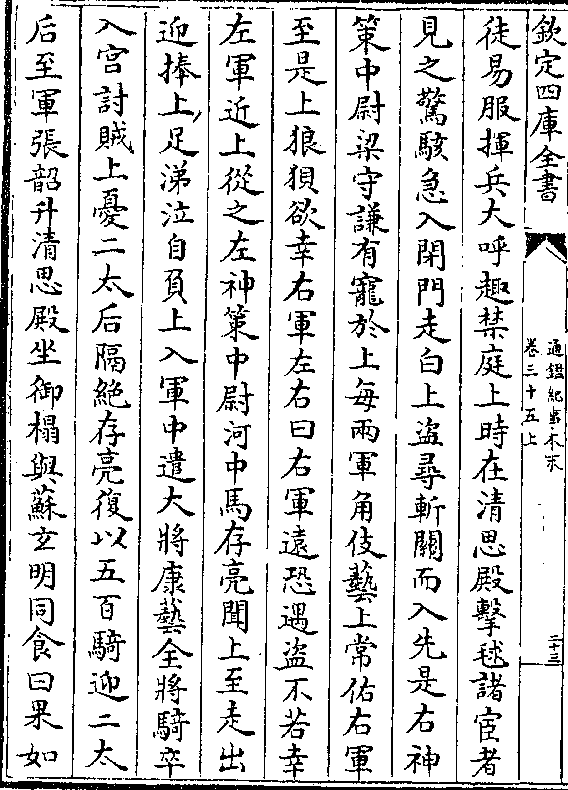 欽定四庫全書
通鑑紀事本末
卷三十五上
二十三
徒易服揮兵大呼趣禁庭上時在清思殿擊毬諸宦者
見之驚駭急入閉門走白上盜尋斬關而入先是右神
策中尉梁守謙有寵於上每兩軍角伎藝上常佑右軍
至是上狼狽欲幸右軍左右曰右軍遠恐遇盜不若幸
左軍近上從之左神策中尉河中馬存亮聞上至走出
迎捧上足涕泣自負上入軍中遣大將康藝全將騎卒
入宫討賊上憂二太后隔絶存亮復以五百騎迎二太
后至軍張韶升清思殿坐御榻與蘇玄明同食曰果如